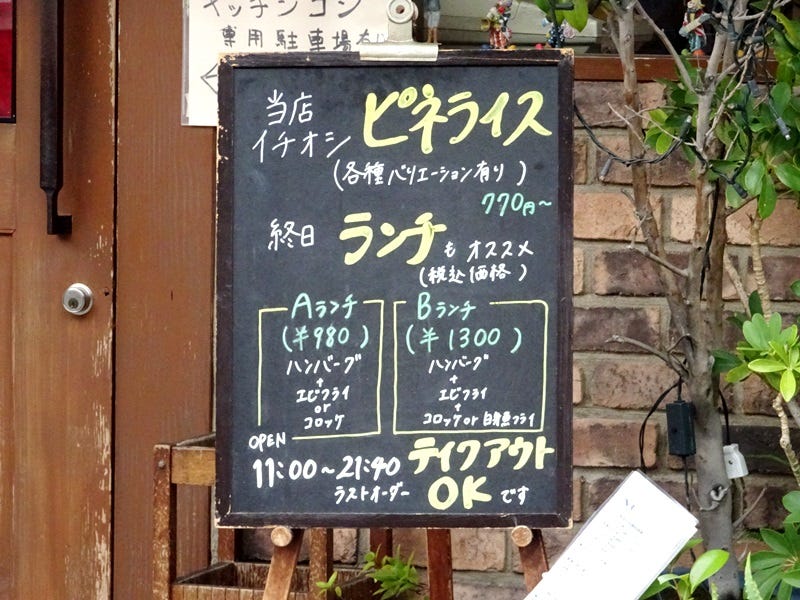 キッチンゴン
専用駐車場有り
当店
イチオシ ピネライス
(各種バリエーション有り)
770円~
終日 ランチ も オススメ
(税込価格)
Aランチ
(¥980)
ハンバーグ
+
エビフライ
or
コロッケ
Bランチ
(¥1300)
ハンバーグ
+
エビフライ
+
コロッケ or 白身魚フライ
OPEN
11:00~21:40
ラストオーダー
テイクアウト
OK です